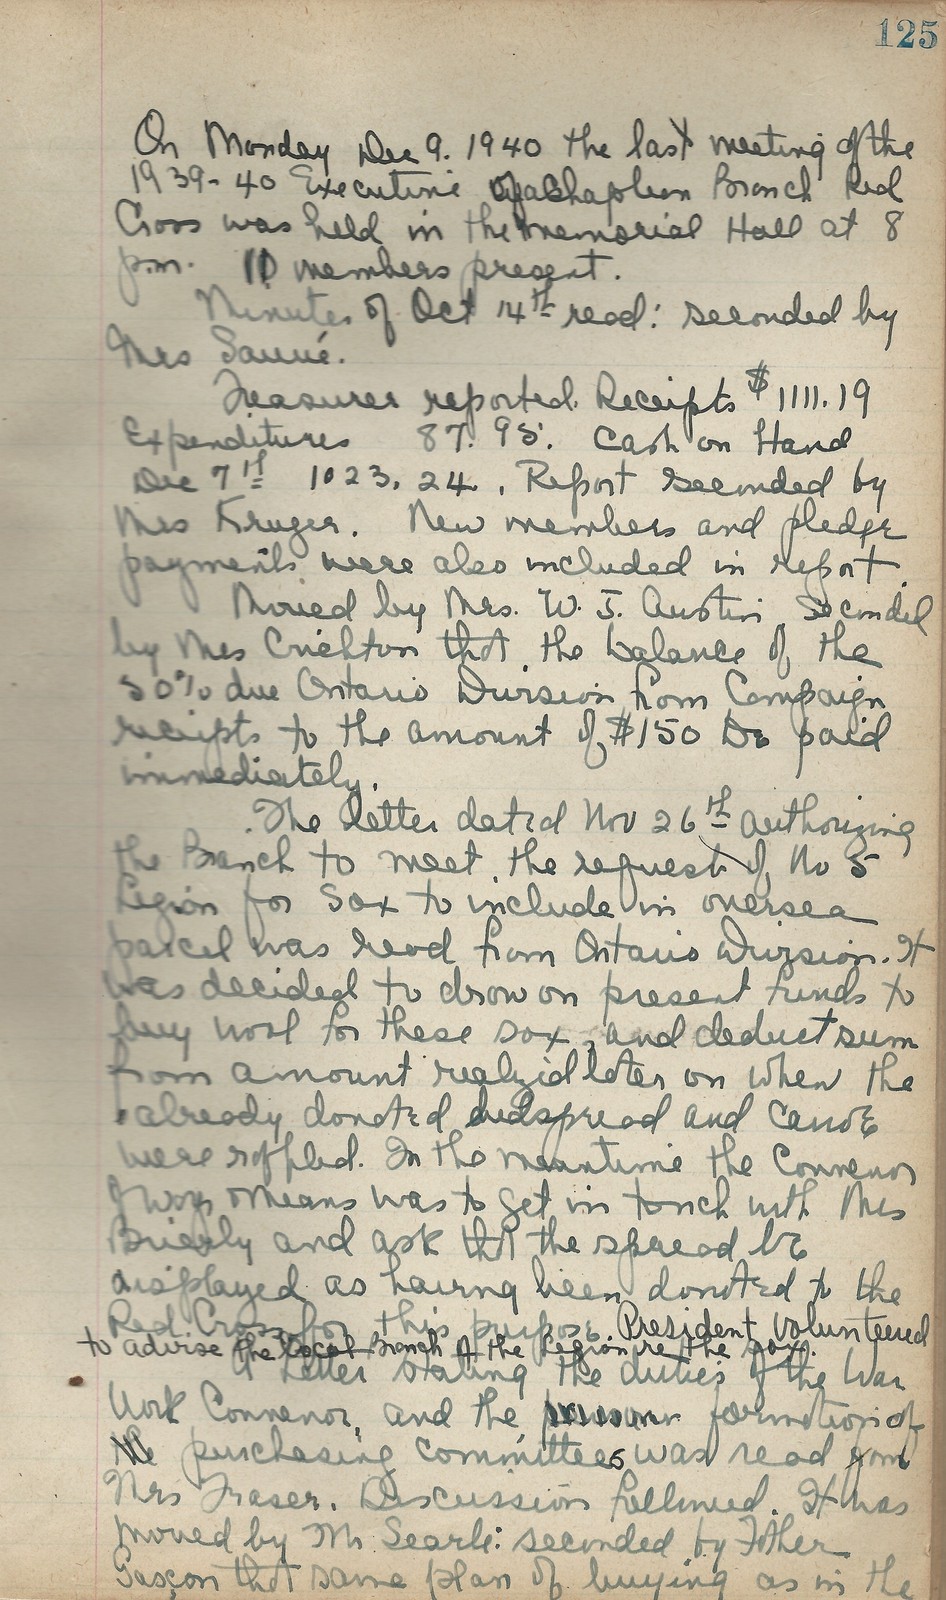 125
On Monday Dec 9. 1940 the last meeting of the
1939-40 Executive of Chapleau Branch Red
Cross was held in the Memorial Hall at 8
p.m. 11 members present.
Minutes of Oct 14th read: seconded by
Mrs Sauvé.
Treasurer reported. Receipts $1111.19
Expenditures 87.95. Cash on Hand
Dec 7th 1023.24. Report seconded by
Mrs Kruger. New members and pledge
payments were also included in report.
Moved by Mrs. W. J. Austin, Seconded
by Mrs Crichton that the balance of the
50% due Ontario Division from Campaign
receipts to the amount of $150 be paid
immediately.
The letter dated Nov 26th authorizing
the Branch to meet the request of No 5
Legion for sox to include in oversea
parcel was read from Ontario Division. It
was decided to draw on present funds to
buy wool for these sox, and deduct sum
from amount realized later on when the
already donated bedspread and canoe
were raffled. In the meantime the Convenor
of ways & means was to get in touch with Mrs
Brierly and ask that the spread be
displayed as having been donated to the
Red Cross for this purpose. President volunteered
to advise the local Branch of the Legion re the sox.
A letter stating the duties of the War
Work Convenor, and the formation of
the purchasing committees was read from
Mrs Fraser. Discussion followed. It was
moved by Mr Searle: seconded by Father
Gascon that same plan of buying as in the